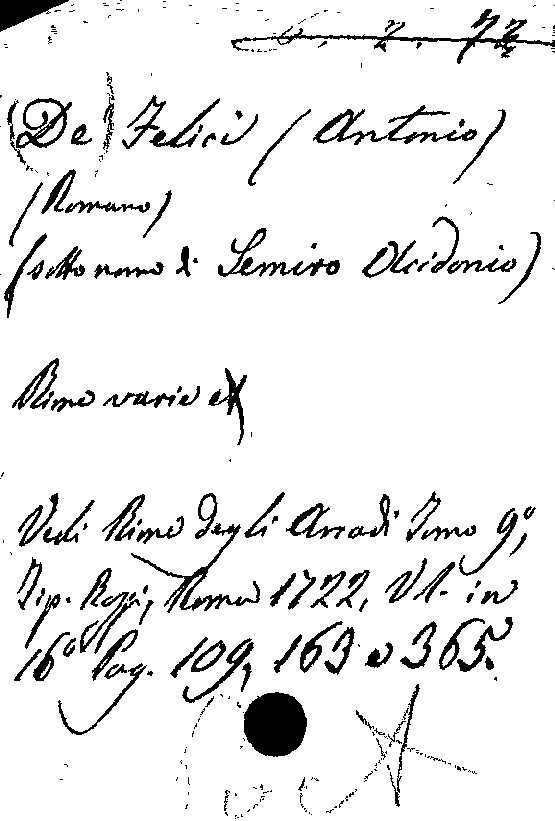 6. 2. 72
(De) Felici (Antonio)
(Romano)
(sotto nome di Semiro Alcidonio)
Rime varie
Vedi Rime degli Arcadi Tomo 9º,
Tip. Rossi, Roma 1722, Vl. in
16º Pag. 109, 163 e 365.